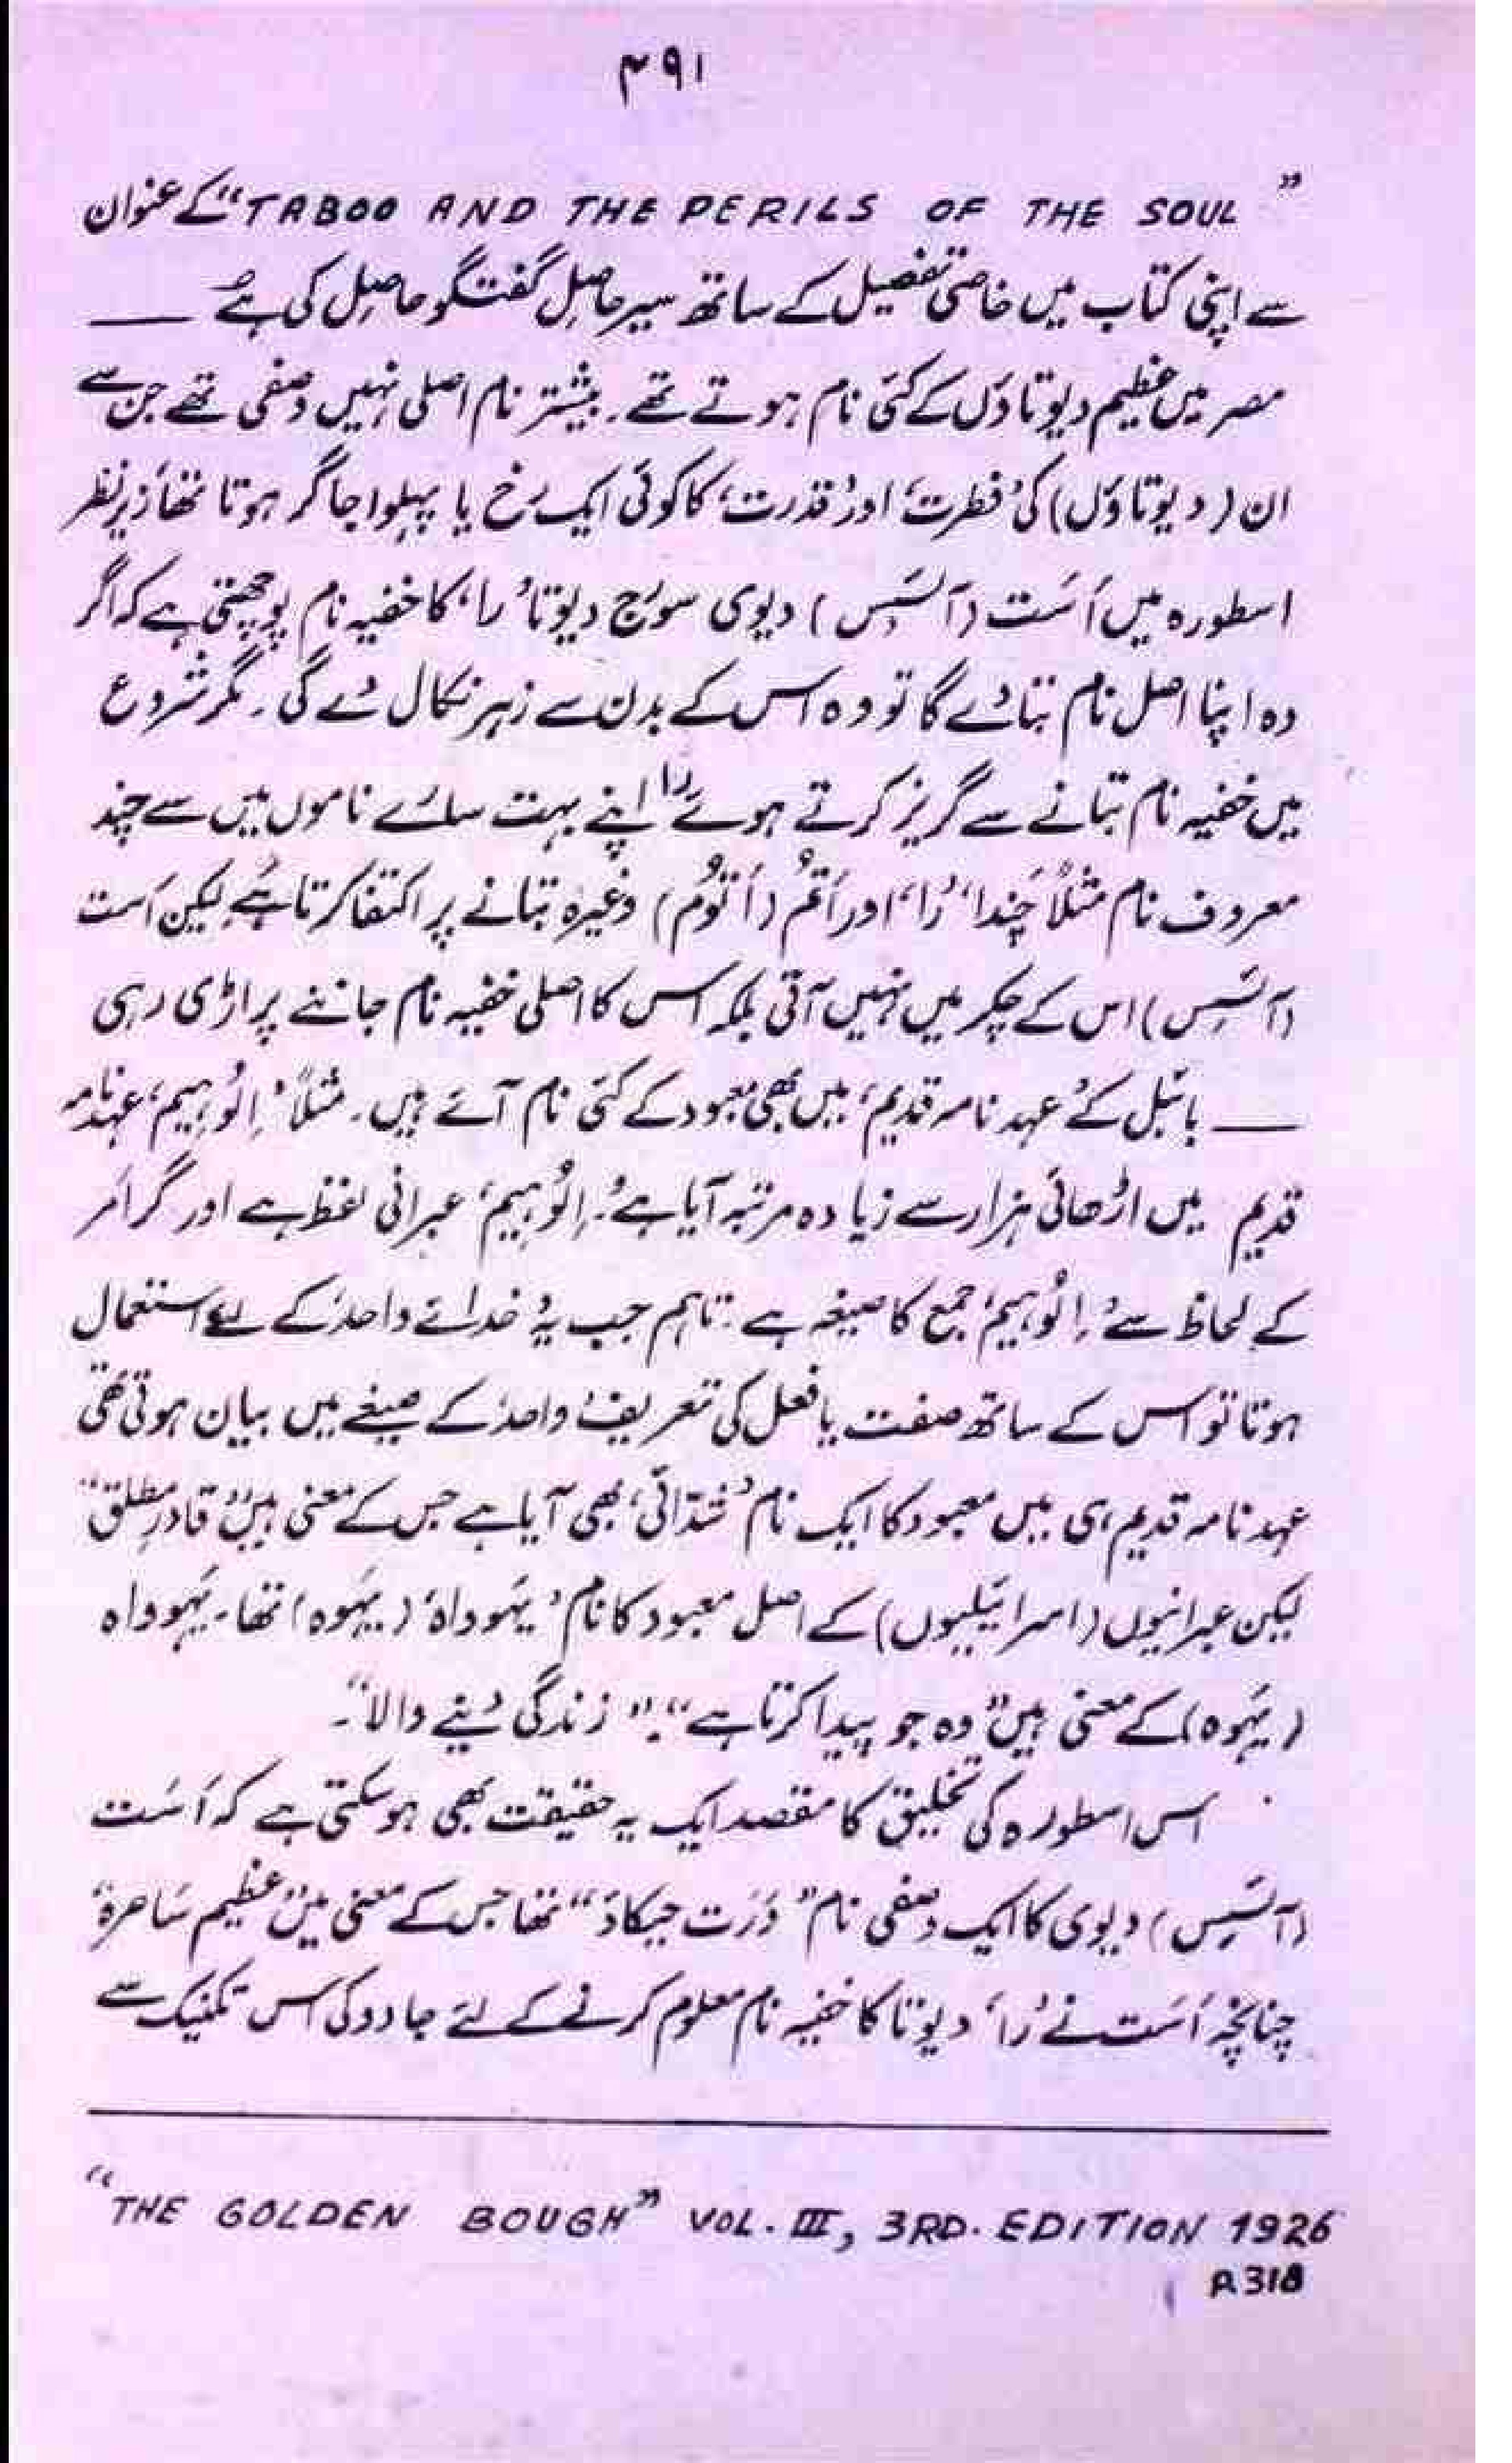 ۴۹۱
"TABOO AND THE PERILS OF THE SOUL" کے عنوان
سے اپنی کتاب میں خاصی تفصیل کے ساتھ سیر حاصل گفتگو حاصل کی ہے ——
مصر میں عظیم دیوتاؤں کے کئی نام ہوتے تھے۔ بیشتر نام اصلی نہیں وصفی تھے جن سے
ان (دیوتاؤں) کی 'فطرت' اور 'قدرت' کا کوئی ایک رخ یا پہلو اجاگر ہوتا تھا، زیر نظر
اسطورہ میں اَسَت (آئسِس) دیوی سورج دیوتا 'را' کا خفیہ نام پوچھتی ہے کہ اگر
وہ اپنا اصل نام بتا دے گا تو وہ اس کے بدن سے زہر نکال دے گی۔ مگر شروع
میں خفیہ نام بتانے سے گریز کرتے ہوئے 'را' اپنے بہت سارے ناموں میں سے چند
معروف نام مثلاً خپدا، 'را' اور اَتُم (اَتُوم) وغیرہ بتانے پر اکتفا کرتا ہے، لیکن اَست
(آئسِس) اس کے چکر میں نہیں آتی بلکہ اس کا اصلی خفیہ نام جاننے پر اڑی رہی
—— بائبل کے 'عہد نامہ قدیم' میں بھی معبود کے کئی نام آئے ہیں۔ مثلاً 'اِلُوہیم' عہدنامہ
قدیم میں اڑھائی ہزار سے زیادہ مرتبہ آیا ہے۔ 'اِلُوہیم' عبرانی لفظ ہے اور گرامر
کے لحاظ سے 'اِلُوہیم' جمع کا صیغہ ہے۔ تاہم جب یہ 'خدائے واحد' کے لیے استعمال
ہوتا تو اس کے ساتھ صفت یا فعل کی تعریف 'واحد' کے صیغے میں بیان ہوتی تھی
عہد نامہ قدیم ہی میں معبود کا ایک نام 'شدّائی' بھی آیا ہے جس کے معنی ہیں "قادرِ مطلق"
لیکن عبرانیوں (اسرائیلیوں) کے اصل معبود کا نام 'یہوواہ' (یَہوہ) تھا۔ یَہوواہ
(یَہوہ) کے معنی ہیں "وہ جو پیدا کرتا ہے"۔ "زندگی دینے والا"۔
اس اسطورہ کی تخلیق کا مقصد ایک یہ حقیقت بھی ہو سکتی ہے کہ اَسَت
(آئسِس) دیوی کا ایک وصفی نام "وَرَت حیکاؤ" تھا جس کے معنی ہیں "عظیم ساحرہ"
چنانچہ اَسَت نے 'را' دیوتا کا خفیہ نام معلوم کرنے کے لئے جادو کی اس تکنیک سے
"THE GOLDEN BOUGH" VOL. III, 3RD. EDITION 1926
P.318